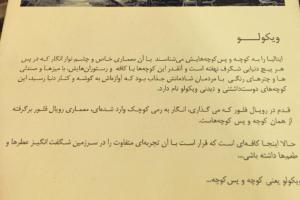 ویکولو
ایتالیا را به کوچه و پس‌کوچه‌هایش می‌شناسند. با آن معماری خاص و چشم نواز انگار که در پس
هر پیچ دنیایی شگرف نهفته است و آنقدر این کوچه‌ها با کافه و رستوران‌هایش، با میزها و صندلی
ها و چترهای رنگی با مردمان شادمانش جذاب بود که آوازه‌اش به گوشه و کنار دنیا رسید، این
کوچه‌های دوست‌داشتنی و دیدنی ویکولو نام دارد.
قدم در رویال فلور که می گذاری، انگار به رمی کوچک وارد شده‌ای، معماری رویال فلور برگرفته
از همان کوچه و پس‌کوچه است.
حالا اینجا کافه‌ای است که قرار است با آن تجربه‌ای متفاوت را در سرزمین شگفت انگیز عطرها و
طعم‌ها داشته باشی...
ویکولو یعنی کوچه و پس‌کوچه...